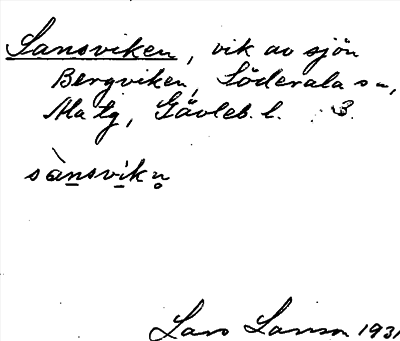 Sansviken, vik av sjön
Bergviken, Söderala sn,
Ala tg, Gävleb. l. 3.
sànsvikn̥
Lars Larsson 1931